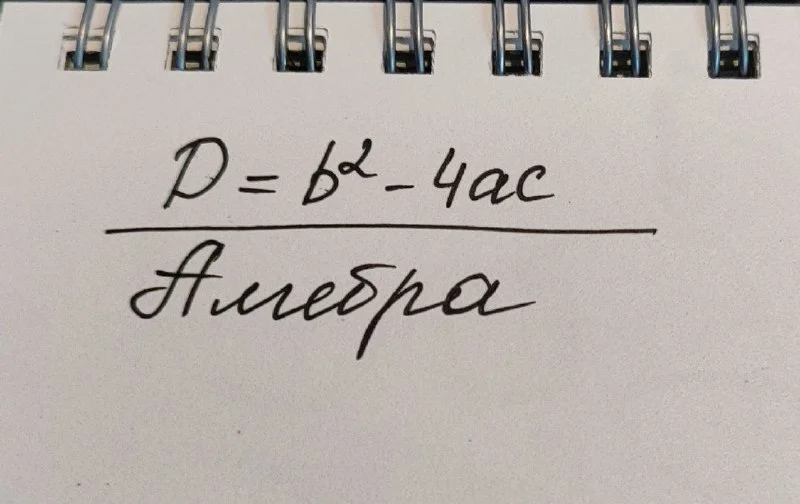 D = b² - 4ac
Алгебра